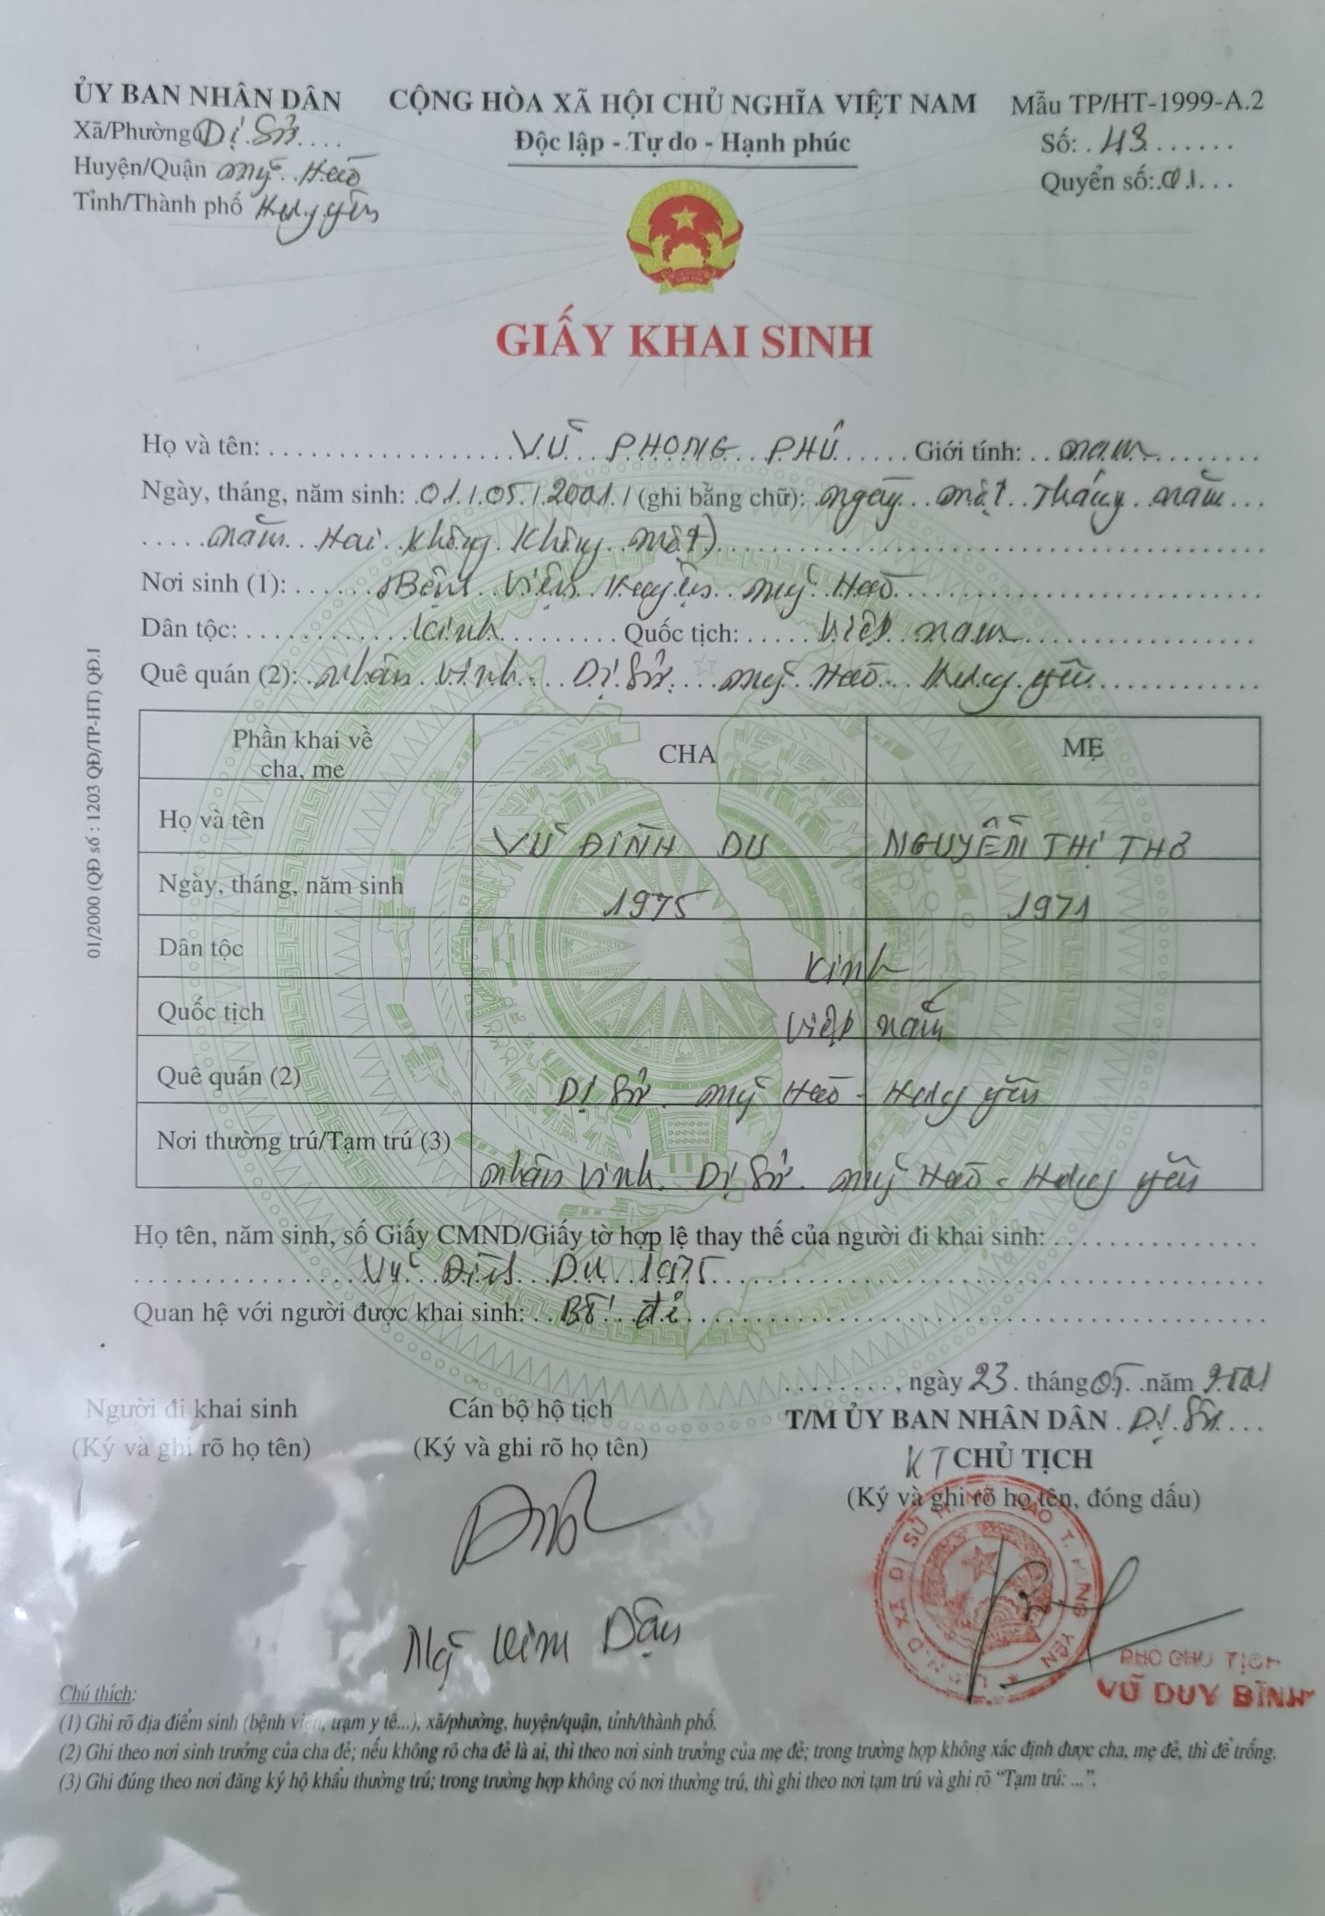 ỦY BAN NHÂN DÂN
Xã/Phường Dị Sử
Huyện/Quận Mỹ Hào
Tỉnh/Thành phố Hưng Yên
CỘNG HÒA XÃ HỘI CHỦ NGHĨA VIỆT NAM
Độc lập - Tự do - Hạnh phúc
Mẫu TP/HT-1999-A.2
Số: 43
Quyển số: 01
GIẤY KHAI SINH
Họ và tên: VŨ PHONG PHÚ Giới tính: Nam
Ngày, tháng, năm sinh: 01/05/2001 (ghi bằng chữ): Ngày một tháng năm
năm Hai không không một)
Nơi sinh (1): Bệnh viện Huyện Mỹ Hào
Dân tộc: Kinh Quốc tịch: Việt Nam
Quê quán (2): Nhân Vinh - Dị Sử - Mỹ Hào - Hưng Yên
01/2000 (QĐ số : 1203 QĐ/TP-HT) QĐ.1
Phần khai về cha, mẹ CHA MẸ
Họ và tên VŨ ĐÌNH DU NGUYỄN THỊ THƠ
Ngày, tháng, năm sinh 1975 1971
Dân tộc Kinh
Quốc tịch Việt Nam
Quê quán (2) Dị Sử - Mỹ Hào - Hưng Yên
Nơi thường trú/Tạm trú (3) Nhân Vinh - Dị Sử - Mỹ Hào - Hưng Yên
Họ tên, năm sinh, số Giấy CMND/Giấy tờ hợp lệ thay thế của người đi khai sinh:
Vũ Đình Du 1975
Quan hệ với người được khai sinh: Bố đẻ
, ngày 23 tháng 05 năm 2001
Người đi khai sinh
(Ký và ghi rõ họ tên)
Cán bộ hộ tịch
(Ký và ghi rõ họ tên)
T/M ỦY BAN NHÂN DÂN Dị Sử
KT CHỦ TỊCH
(Ký và ghi rõ họ tên, đóng dấu)
U.B.N.D XÃ DỊ SỬ H. MỸ HÀO T. HƯNG YÊN
PHÓ CHỦ TỊCH
VŨ DUY BÌNH
Chú thích:
(1) Ghi rõ địa điểm sinh (bệnh viện, trạm y tế...), xã/phường, huyện/quận, tỉnh/thành phố.
(2) Ghi theo nơi sinh trưởng của cha đẻ; nếu không rõ cha đẻ là ai, thì theo nơi sinh trưởng của mẹ đẻ; trong trường hợp không xác định được cha, mẹ đẻ, thì để trống.
(3) Ghi đúng theo nơi đăng ký hộ khẩu thường trú; trong trường hợp không có nơi thường trú, thì ghi theo nơi tạm trú và ghi rõ “Tạm trú: ...”.